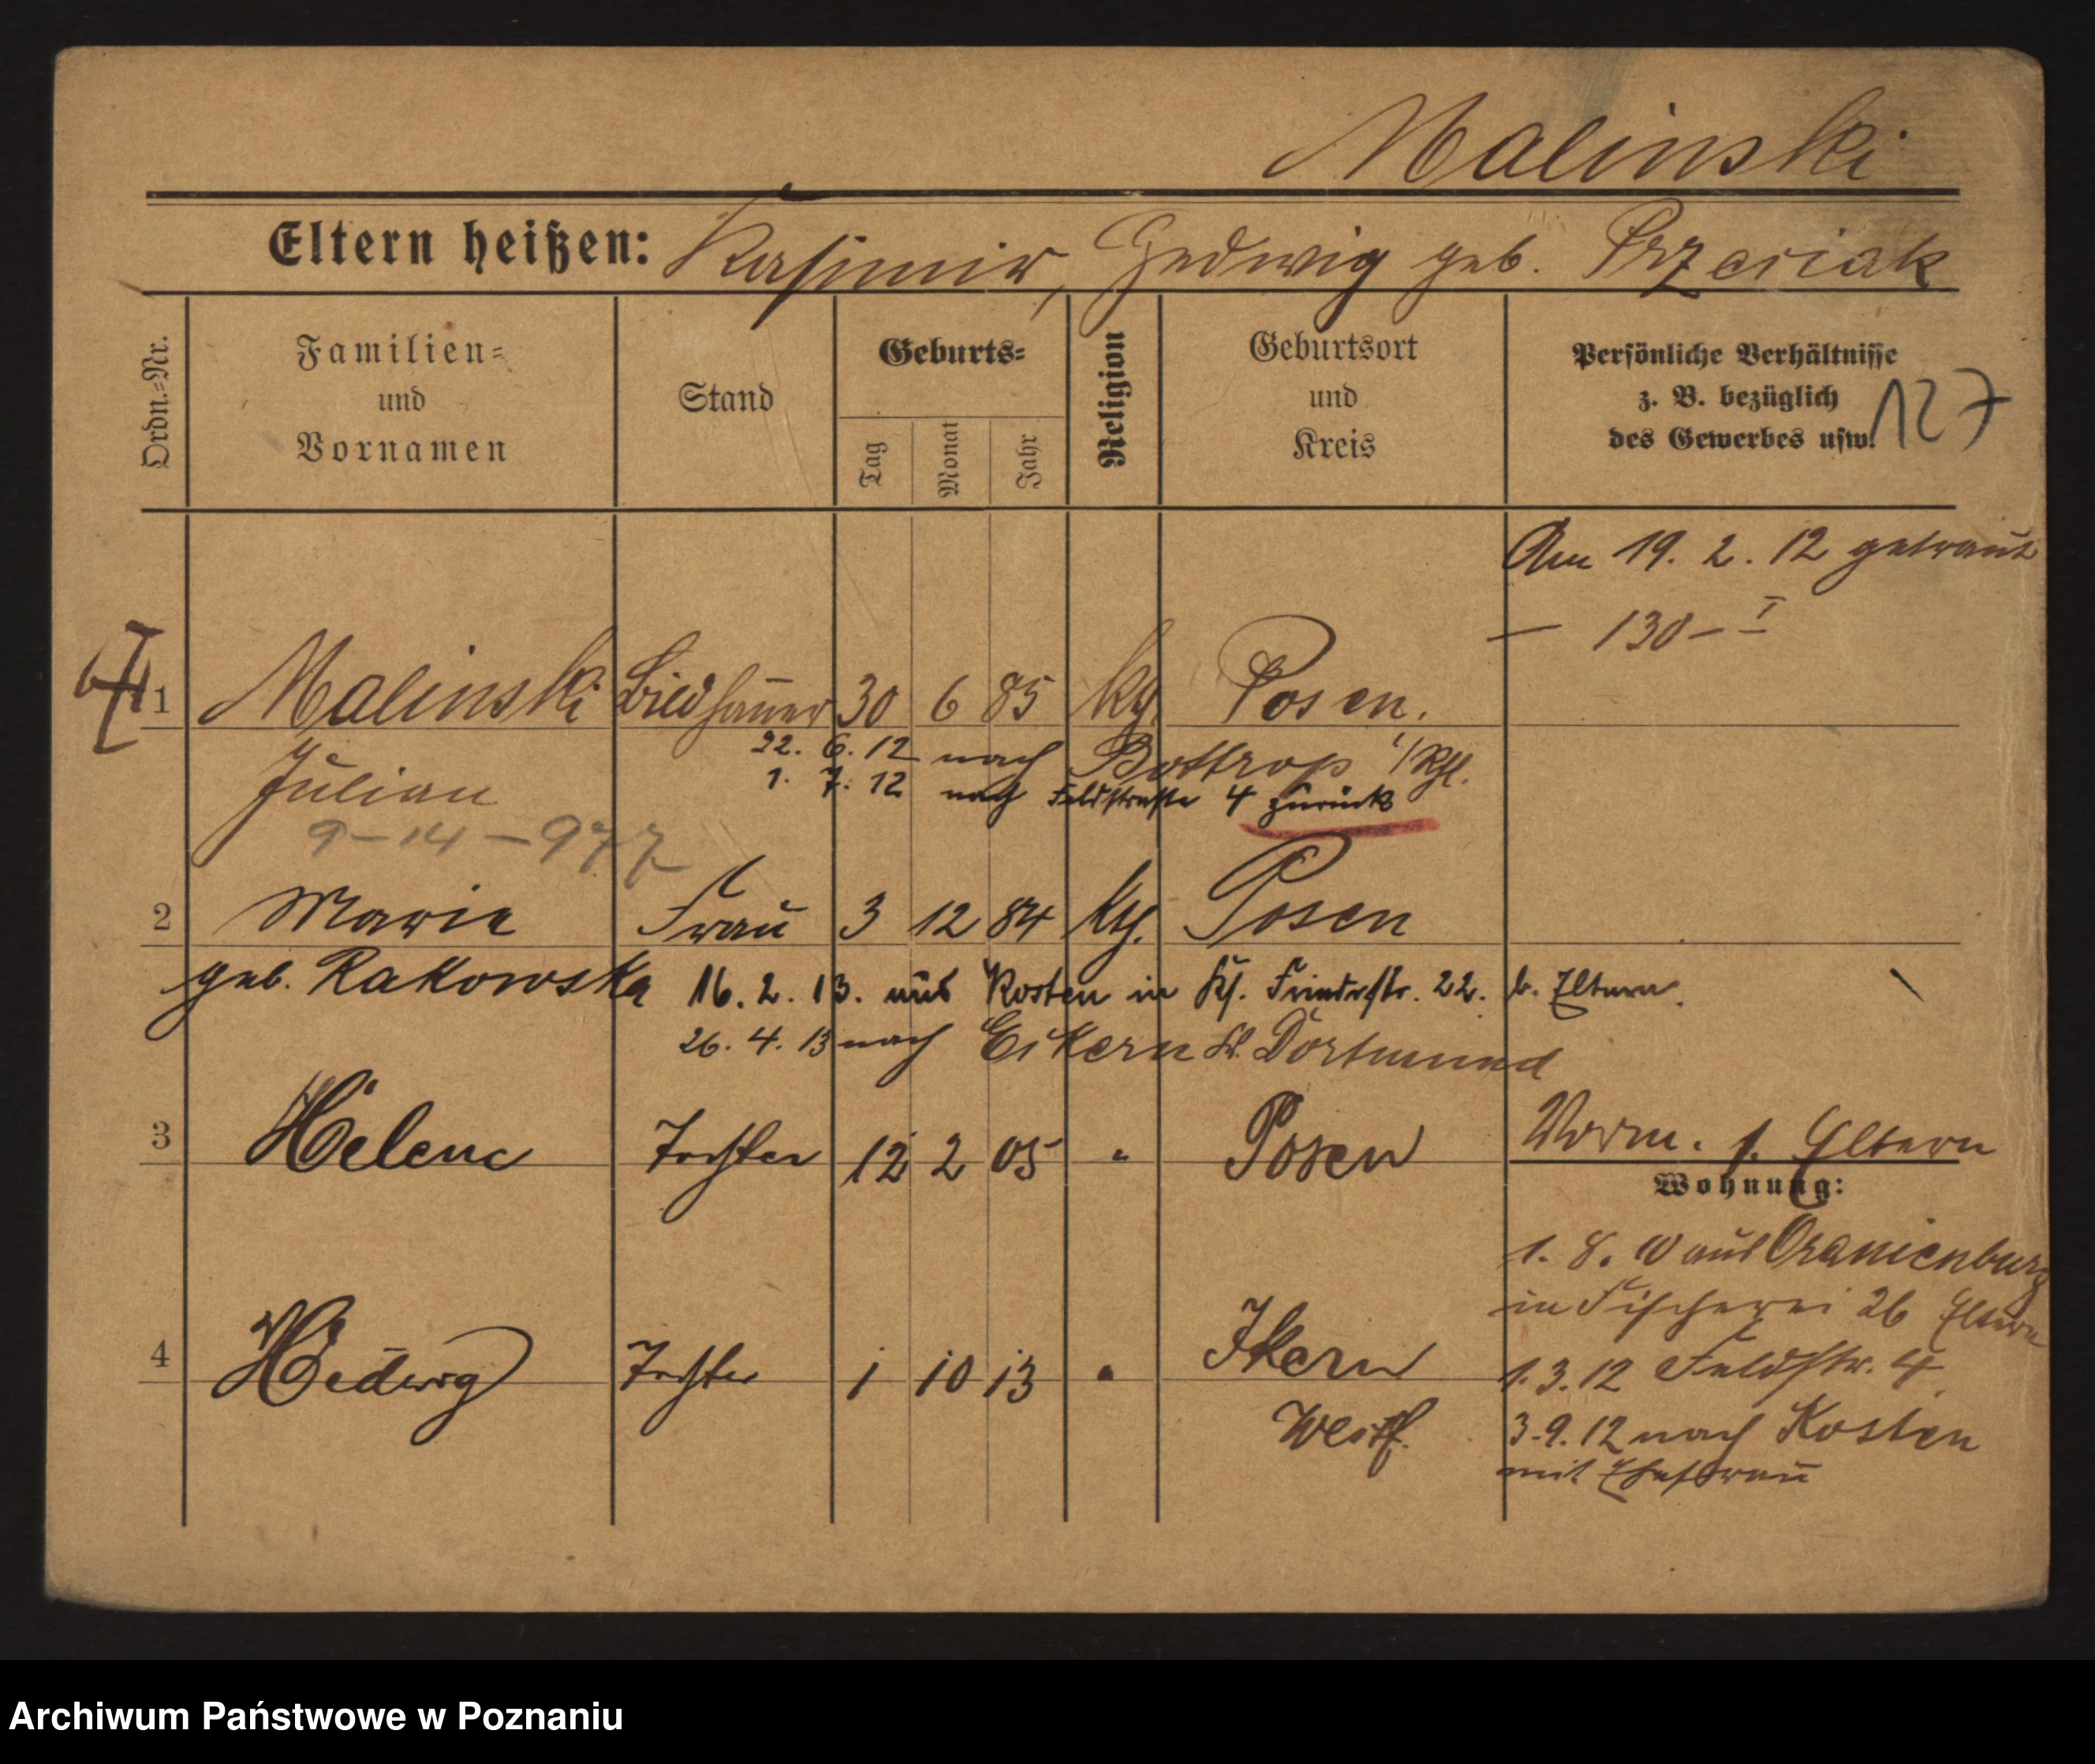 Malinski
Eltern heißen: Kasimir, Hedwig geb. Przeriak
Ordn.-Nr.
Familien-
und
Vornamen
Stand
Geburts-
Tag
Monat
Jahr
Religion
Geburtsort
und
Kreis
Persönliche Verhältnisse
z. B. bezüglich
des Gewerbes usw.
127
Am 19. 2. 12 getraut
— 130 – I
1 Malinski Bildhauer 30 6 85 kth. Posen.
22. 6. 12 nach Bottrop
Julian
1. 7. 12 nach Feldstraße 4 zurück
9-14-977
2 Marie Frau 3 12 84 kth. Posen
geb. Rakowska 16. 2. 13. aus Kosten in Friedrstr. 22. b. Eltern.
26. 4. 13 nach Eikern Dortmund
3 Helene Tochter 12 2 05 " Posen
Vorm. s. Eltern
Wohnung:
1. 8. 10 aus Oranienburg
in Fischerei 26 Eltern
4 Hedwig Tochter 1 10 13 " Ikern
Westf.
1. 3. 12 Feldstr. 4
3. 9. 12 nach Kosten
mit Ehefrau
Archiwum Państwowe w Poznaniu